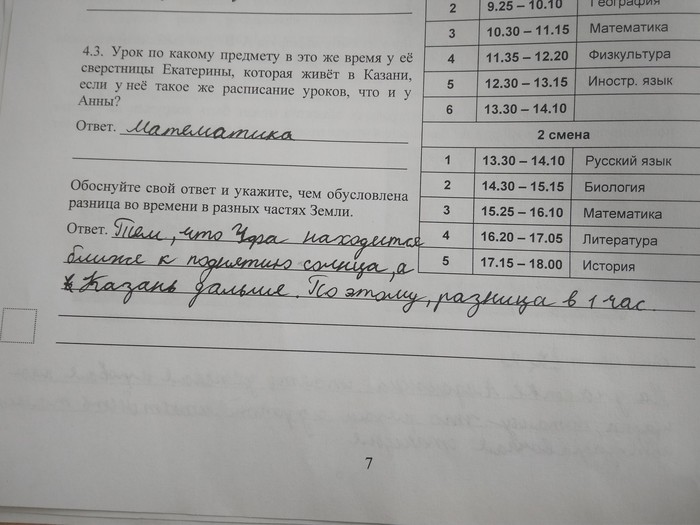 4.3. Урок по какому предмету в это же время у её
сверстницы Екатерины, которая живёт в Казани,
если у неё такое же расписание уроков, что и у
Анны?
Ответ. Математика
Обоснуйте свой ответ и укажите, чем обусловлена
разница во времени в разных частях Земли.
Ответ. Тем, что Уфа находится
ближе к поднятию солнца, а
Казань дальше. Поэтому, разница в 1 час.
2 9.25 – 10.10 География
3 10.30 – 11.15 Математика
4 11.35 – 12.20 Физкультура
5 12.30 – 13.15 Иностр. язык
6 13.30 – 14.10
2 смена
1 13.30 – 14.10 Русский язык
2 14.30 – 15.15 Биология
3 15.25 – 16.10 Математика
4 16.20 – 17.05 Литература
5 17.15 – 18.00 История
7